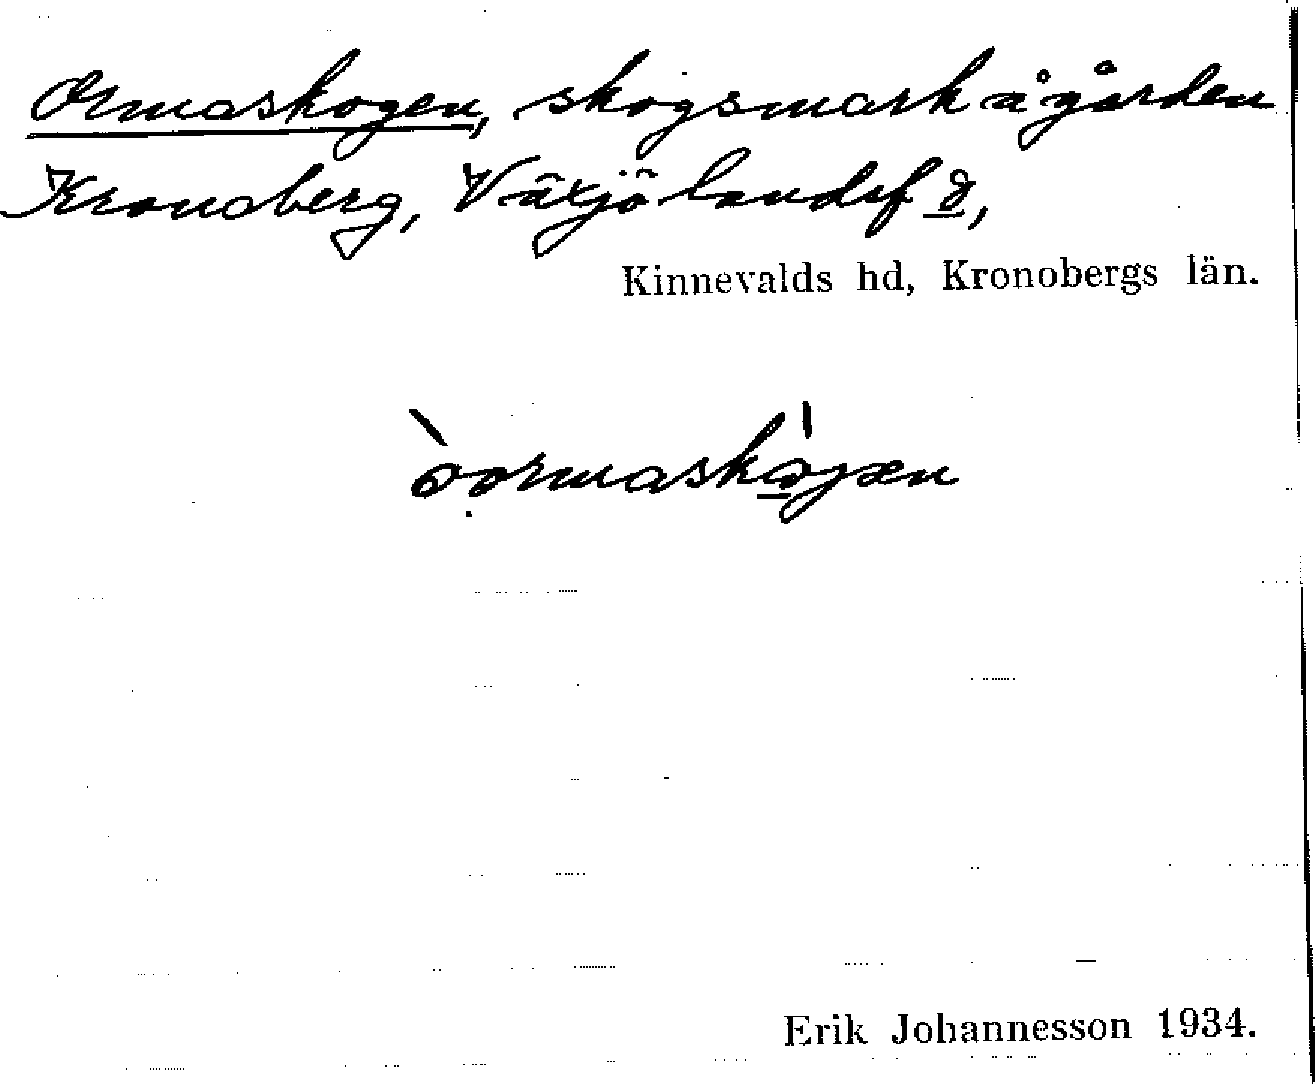 Ormaskogen, skogsmark å gården
Kronoberg, Växjö landsf d,
Kinnevalds hd, Kronobergs län.
Erik Johannesson 1934.